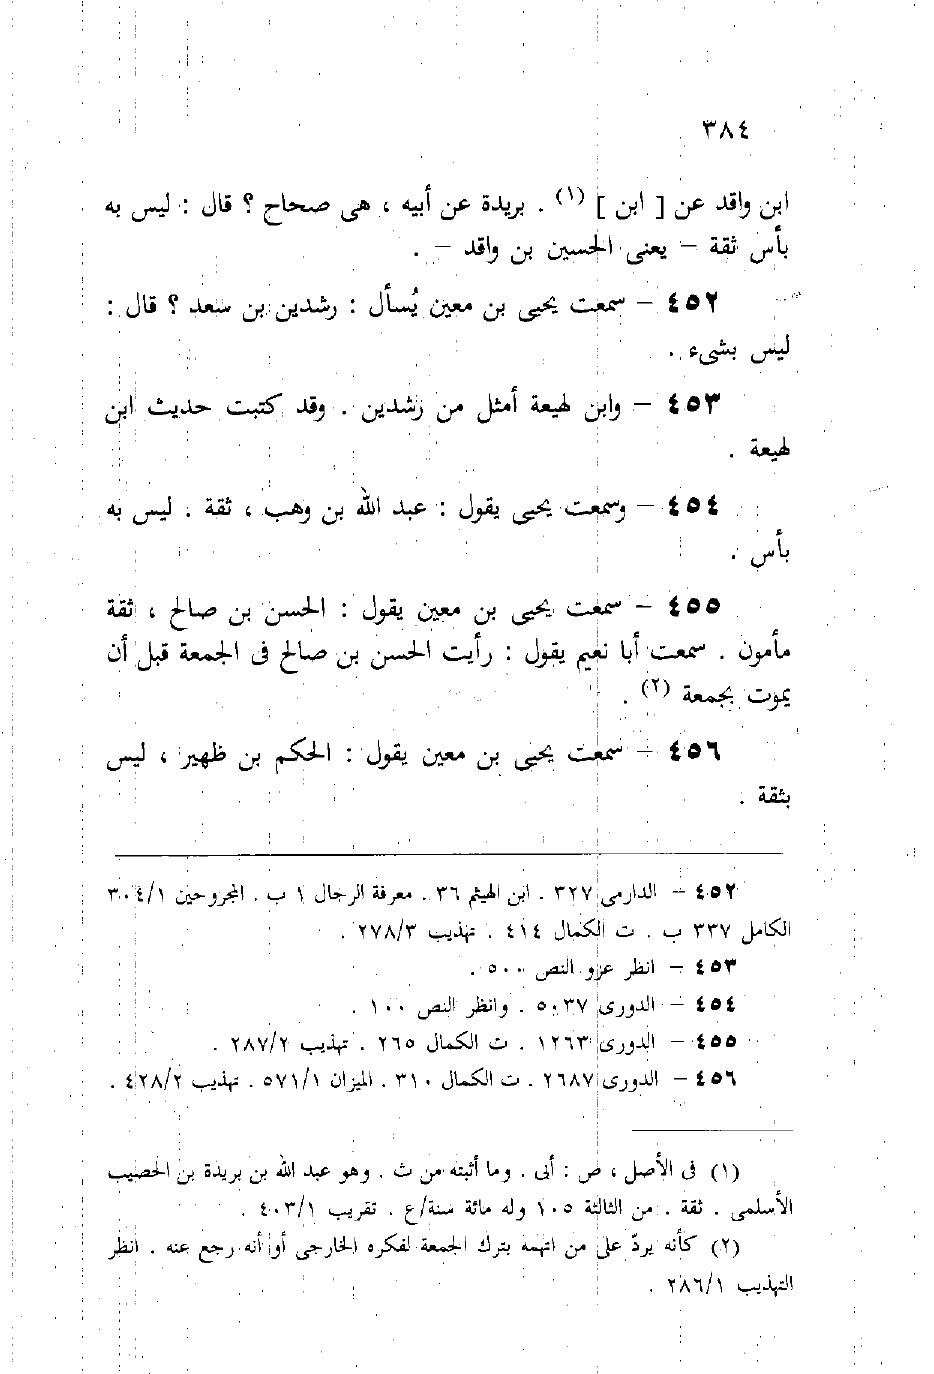 ٣٨٤
ابن واقد عن [ ابن ] (١) . بريدة عن أبيه ، هى صحاح ؟ قال : ليس به
بأس ثقة – يعنى الحسين بن واقد – .
٤٥٢ – سمعت يحيى بن معين يُسأل : رشدين بن سعد ؟ قال :
ليس بشىء .
٤٥٣ – وابن لهيعة أمثل من رشدين . وقد كتبت حديث ابن
لهيعة .
٤٥٤ – وسمعت يحيى يقول : عبد الله بن وهب ، ثقة . ليس به
بأس .
٤٥٥ – سمعت يحيى بن معين يقول : الحسن بن صالح ، ثقة
مأمون . سمعت أبا نعيم يقول : رأيت الحسن بن صالح فى الجمعة قبل أن
يموت بجمعة (٢) .
٤٥٦ – سمعت يحيى بن معين يقول : الحكم بن ظهير ، ليس
بثقة .
٤٥٢ – الدارمى ٣٢٧ . ابن الهيثم ٣٦ . معرفة الرجال ١ ب . المجروحين ٣٠٤/١
الكامل ٣٣٧ ب . ت الكمال ٤١٤ . تهذيب ٢٧٨/٣ .
٤٥٣ – انظر عزو النص ٥٠٠ .
٤٥٤ – الدورى ٥٠٣٧ . وانظر النص ١٠٠ .
٤٥٥ – الدورى ١٢٦٣ . ت الكمال ٢٦٥ . تهذيب ٢٨٧/٢ .
٤٥٦ – الدورى ٢٦٨٧ . ت الكمال ٣١٠ . الميزان ٥٧١/١ . تهذيب ٤٢٨/٢ .
(١) فى الأصل ، ص : أبى . وما أثبته من ث . وهو عبد الله بن بريدة بن الحصيب
الأسلمى . ثقة . من الثالثة ١٠٥ وله مائة سنة/ع . تقريب ٤٠٣/١ .
(٢) كأنه يردّ على من اتهمه بترك الجمعة لفكره الخارجى أو أنه رجع عنه . انظر
التهذيب ٢٨٦/١ .